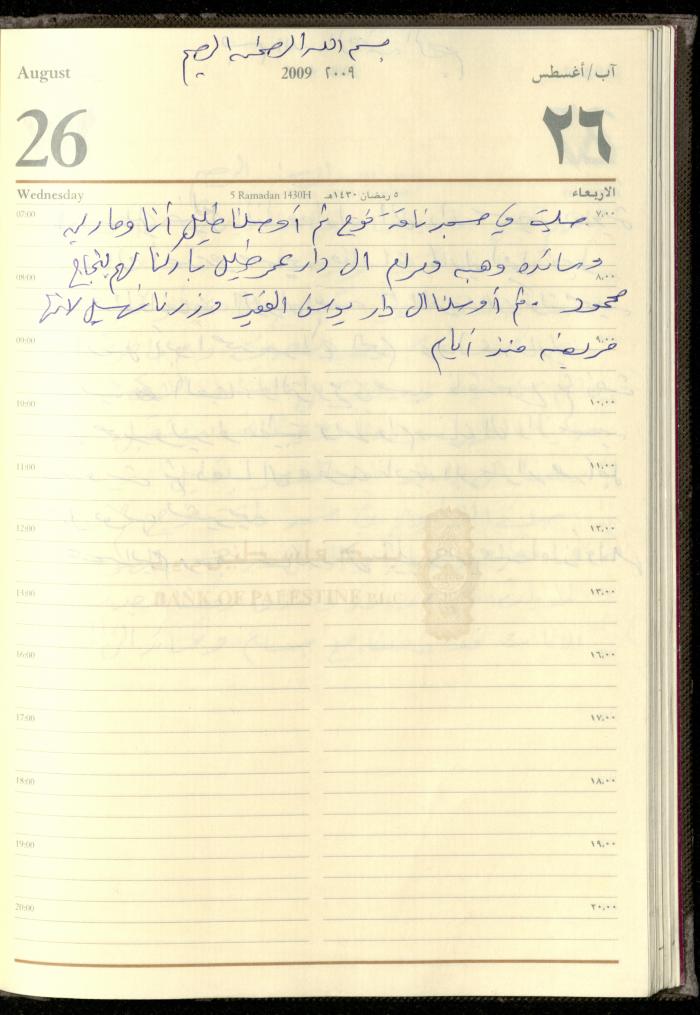 بسم الله الرحمن الرحيم
August
2009 ٢٠٠٩
آب/أغسطس
26
٢٦
Wednesday
5 Ramadan 1430H ٥ رمضان ١٤٣٠هـ
الاربعاء
07:00 ٧،٠٠
صليت في مسجد ناقة ثم أوصلنا خليل أنا وماريه
وسائده وهبه ومرام الى دار عمر خليل باركنا لهم بنجاح
08:00 ٨،٠٠
محمود . ثم أوصلنا ال دار يونس الفقيه وزرنا سهيل لانها
09:00 ٩،٠٠
مريضه منذ أيام
10:00 ١٠،٠٠
11:00 ١١،٠٠
12:00 ١٢،٠٠
13:00 ١٣،٠٠
BANK OF PALESTINE P.L.C
16:00 ١٦،٠٠
17:00 ١٧،٠٠
18:00 ١٨،٠٠
19:00 ١٩،٠٠
20:00 ٢٠،٠٠